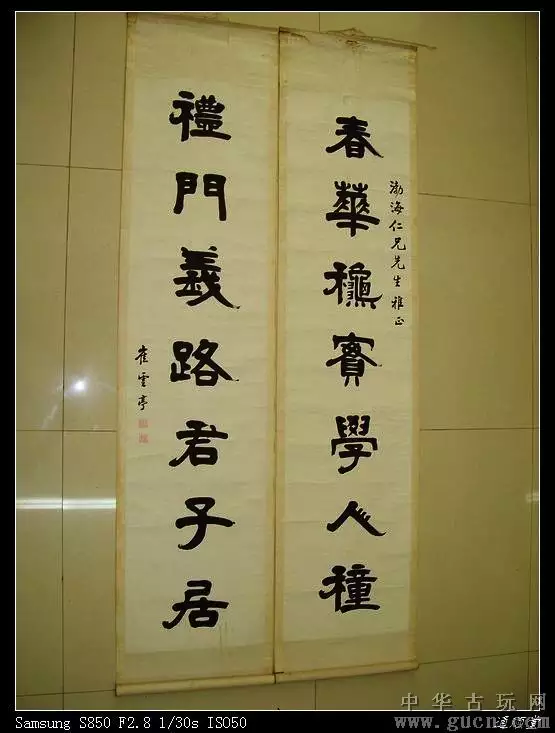 春華穐實學人穜
渤海仁兄先生雅正
禮門義路君子居
崔雲亭
中华古玩网
www.gucn.com
Samsung S850 F2.8 1/30s ISO50